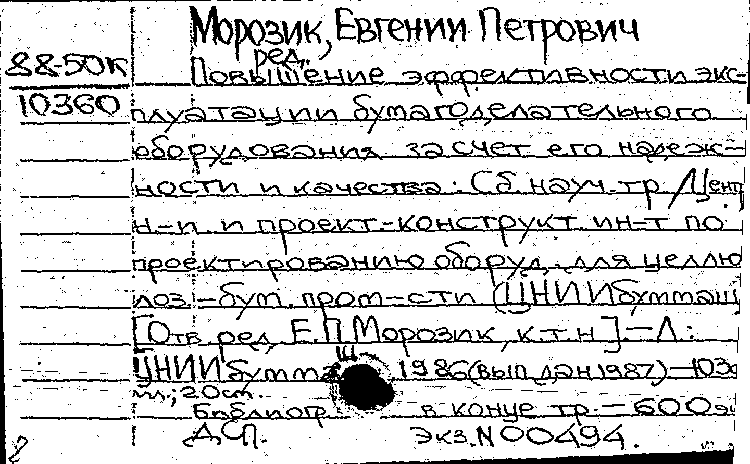 Морозик, Евгений Петрович
ред.
88-50к
Повышение эффективности экс-
10360
плуатации бумагоделательного
оборудования за счет его надеж-
ности и качества: Сб. науч. тр. / Центр.
н-и. и проект.-конструкт. ин-т по
проектированию оборуд. для целлю
лоз.-бум. пром-сти (ЦНИИбуммаш)
[Отв. ред. Е.П. Морозик, к.т.н.] - Л.:
ЦНИИбуммаш 1986 (вып. дан. 1987) - 103с
ил.; 20см.
Библиогр. в конце тр. - 600 э
ДСП. Экз. N 00494.